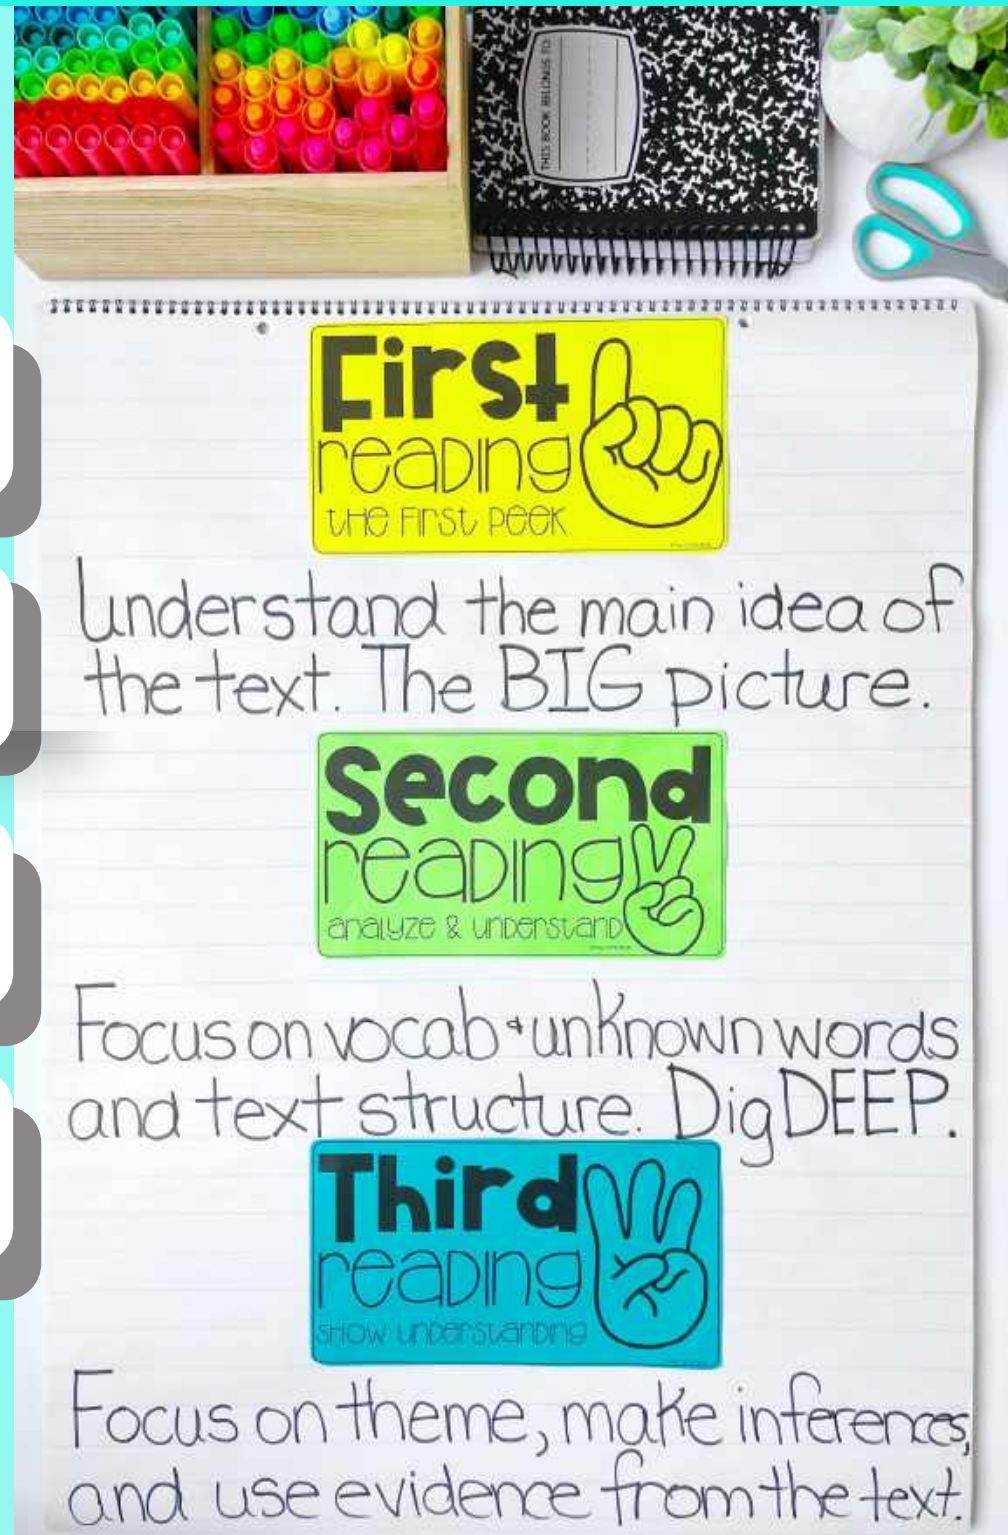 THIS BOOK BELONGS TO:
First
reading
the first peek
Understand the main idea of
the text. The BIG picture.
Second
reading
analyze & understand
Focus on vocab & unknown words
and text structure. Dig DEEP.
Third
reading
show understanding
Focus on theme, make inferences,
and use evidence from the text.